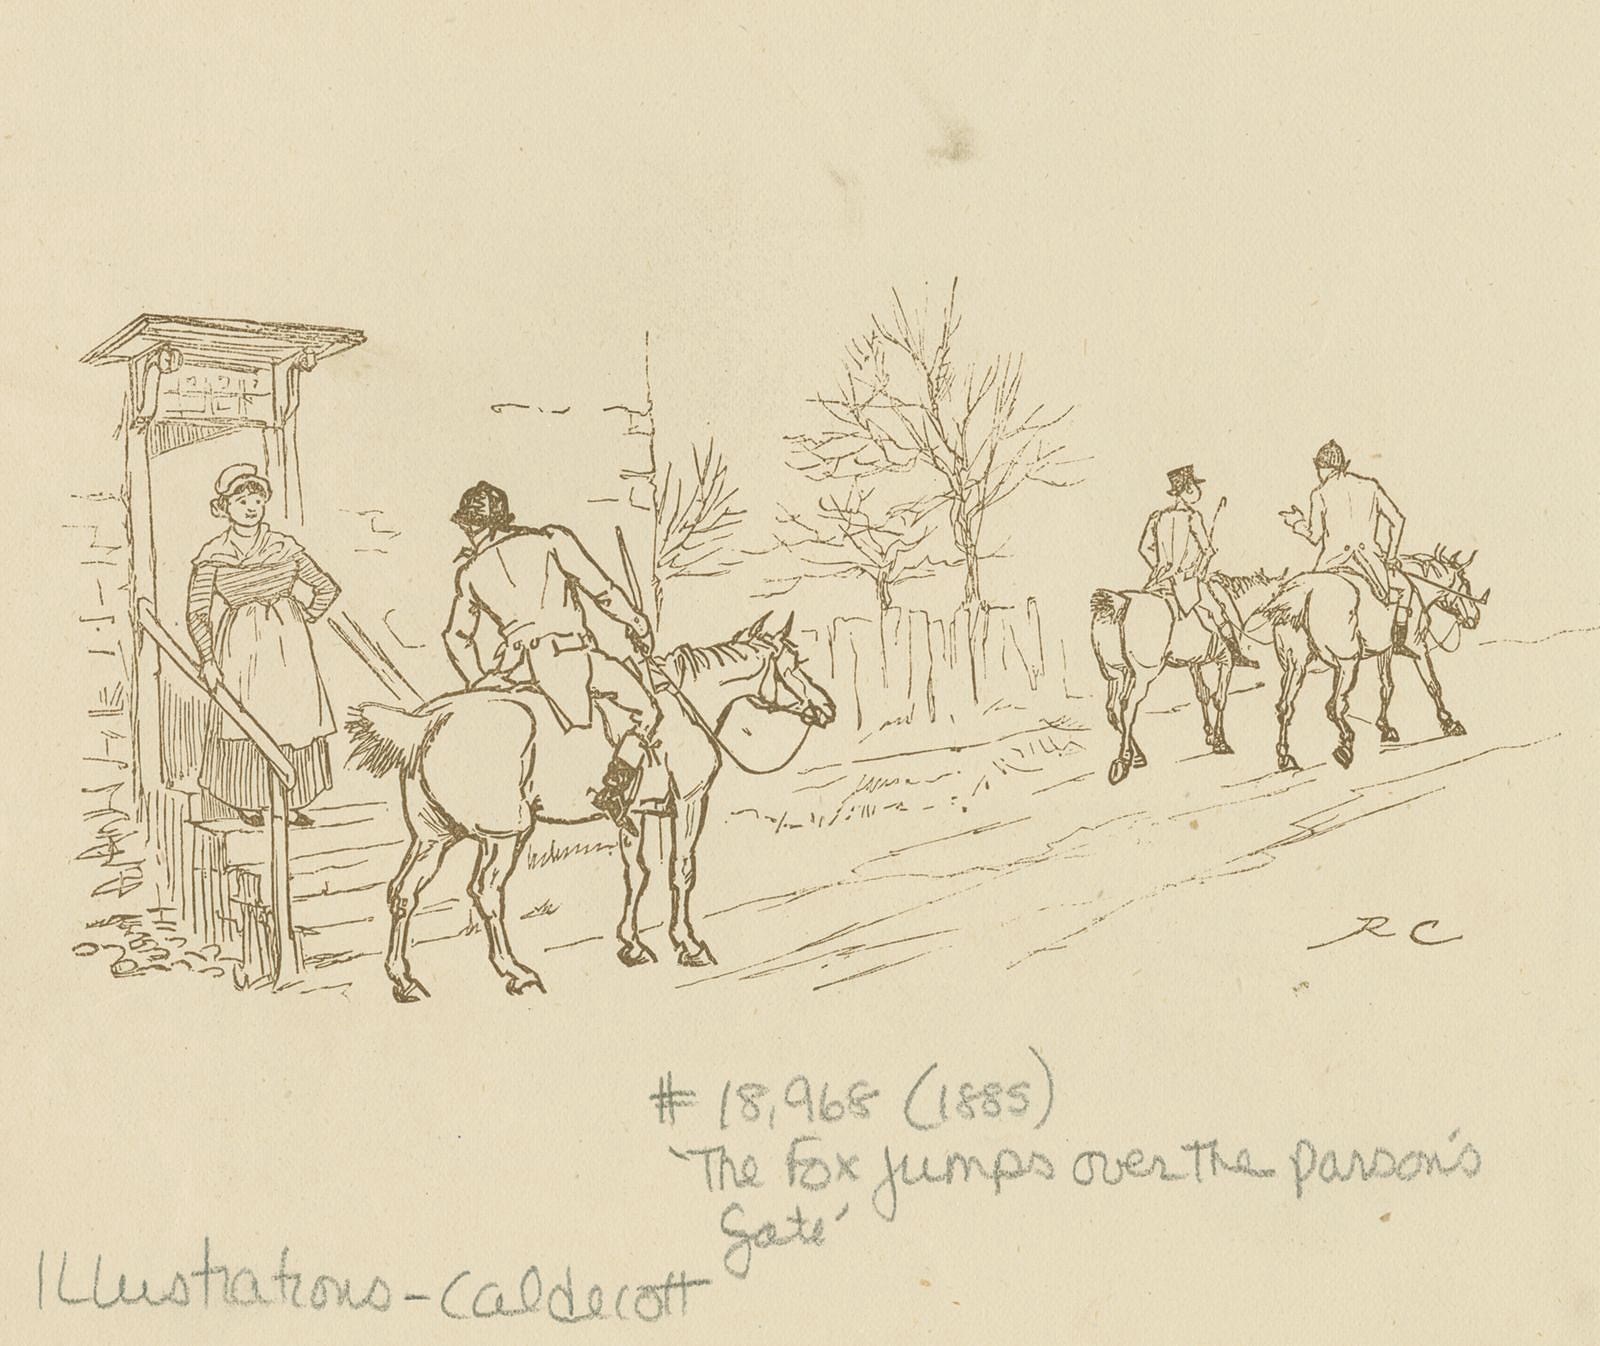 RC
# 18,968 (1885)
'The Fox Jumps over The Parson's
Gate'
Illustrations - Caldecott